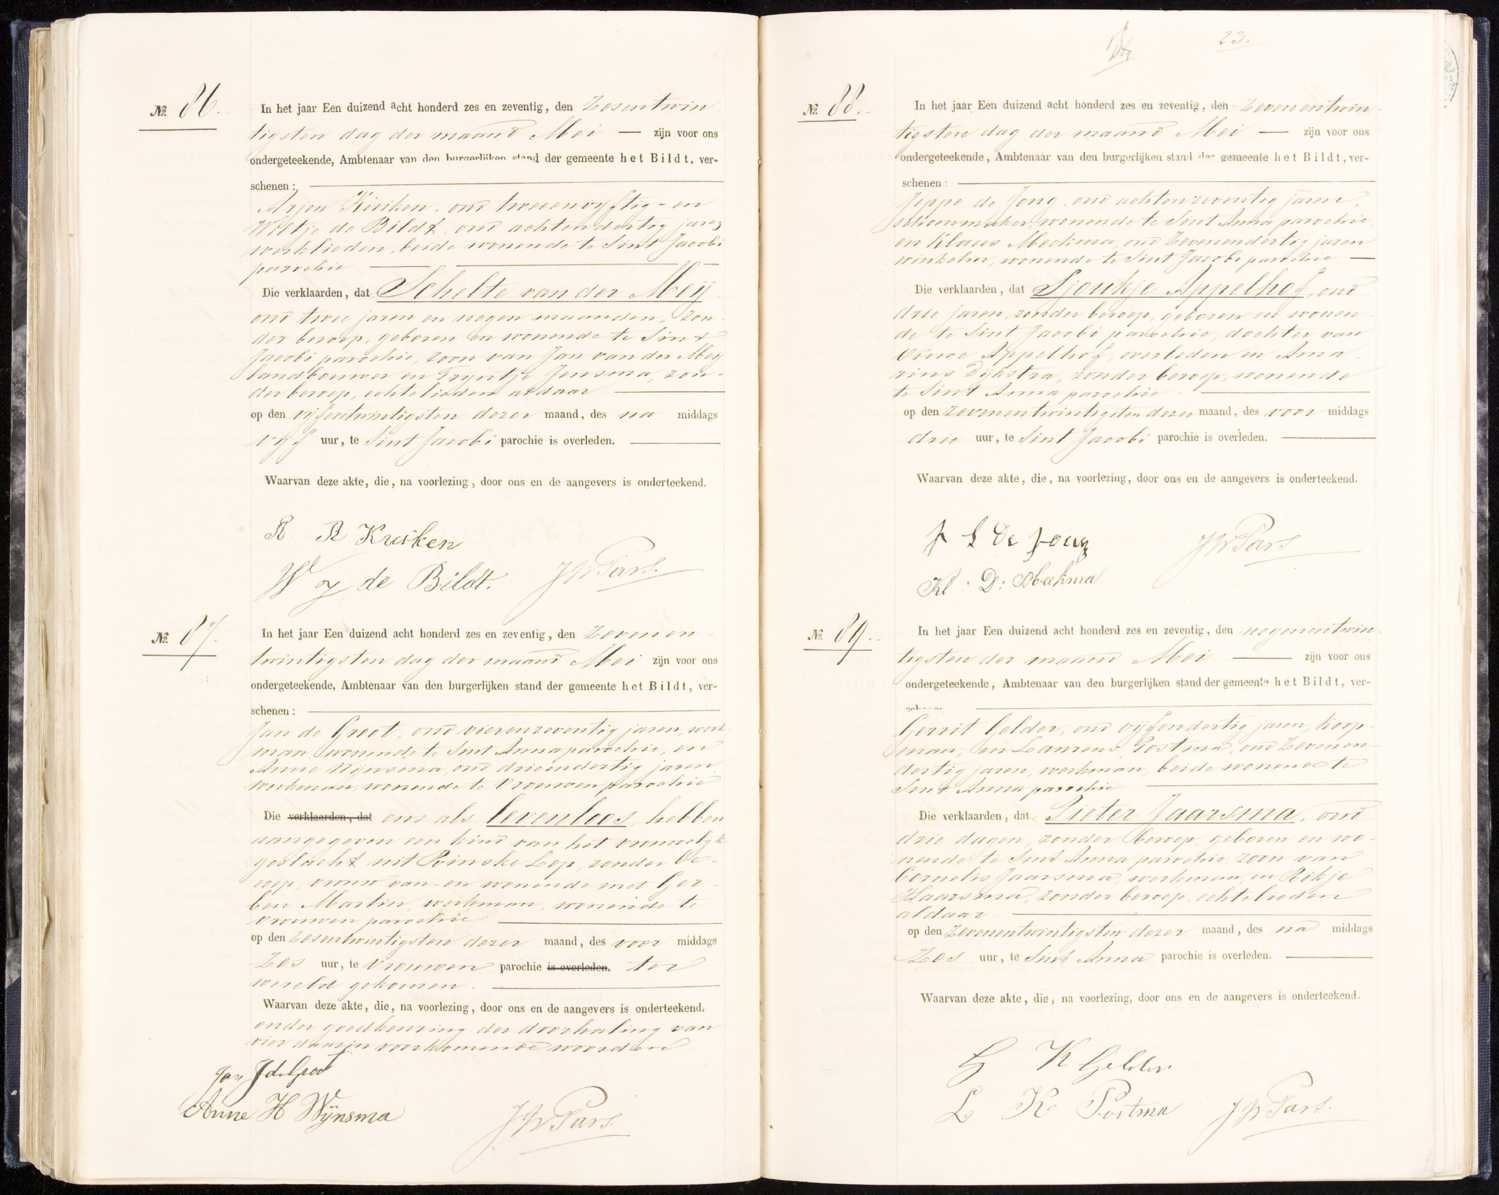 № 86.
In het jaar Een duizend acht honderd zes en zeventig, den Zesentwin
tigsten dag der maand Mei — zijn voor ons
ondergeteekende, Ambtenaar van den burgerlijken stand der gemeente het Bildt, ver-
schenen:
Arjen Kuiken, oud tweeenvyftig - en
de Bildt, oud achtendertig jaren
werklieden, beide wonende te Sint Jacobi
parochie
Die verklaarden, dat Schelte van der Meij
oud twee jaren en negen maanden, zon-
der beroep, geboren en wonende te Sint
Jacobi parochie, zoon van Jan van der Meij
landbouwer en Tryntje Jensma, zon-
der beroep, echtelieden aldaar
op den vyfentwintigsten dezer maand, des na middags
vyf uur, te Sint Jacobi parochie is overleden.
Waarvan deze akte, die, na voorlezing, door ons en de aangevers is onderteekend.
A A Kuiken
W J de Bildt. J W Pars
№ 87.
In het jaar Een duizend acht honderd zes en zeventig, den Zevenen-
twintigsten dag der maand Mei zijn voor ons
ondergeteekende, Ambtenaar van den burgerlijken stand der gemeente het Bildt, ver-
schenen:
Jan de Groot, oud vierenzeventig jaren, werk
man, wonende te Sint Anna parochie, en
Anne Wynsma, oud drieendertig jaren
werkman, wonende te Vrouwen parochie
Die verklaarden, dat ons als levenloos hebben
aangegeven een kind van het vrouwelyk
geslacht uit Reinske Lep, zonder be-
roep, vrouw van en wonende met Ger-
ben Martin, werkman, wonende te
Vrouwen parochie
op den zesentwintigsten dezer maand, des voor middags
Zes uur, te Vrouwen parochie is overleden. ter
wereld gekomen.
Waarvan deze akte, die, na voorlezing, door ons en de aangevers is onderteekend.
onder goedkeuring der doorhaling van
vier daarin voorkomende woorden
Jan J de Groot
Anne H Wÿnsma J W Pars
23.
№ 88.
In het jaar Een duizend acht honderd zes en zeventig, den Zevenentwin-
tigsten dag der maand Mei — zijn voor ons
ondergeteekende, Ambtenaar van den burgerlijken stand der gemeente het Bildt, ver-
schenen:
Jeppe de Jong, oud achtenzeventig jaren,
schoenmaker, wonende te Sint Anna parochie
en Klaas Meekma, oud Zevenendertig jaren
winkelier, wonende te Sint Jacobi parochie —
Die verklaarden, dat Sjoukje Appelhof, oud
drie jaren, zonder beroep, geboren en wonen-
de te Sint Jacobi parochie, dochter van
Oene Appelhof, overleden en Anna
Dykstra, zonder beroep, wonende
te Sint Anna parochie
op den Zevenentwintigsten dezer maand, des voor middags
drie uur, te Sint Jacobi parochie is overleden.
Waarvan deze akte, die, na voorlezing, door ons en de aangevers is onderteekend.
J S de Jong J W Pars
Kl. D. Meekma
№ 89.
In het jaar Een duizend acht honderd zes en zeventig, den negenentwin-
tigsten der maand Mei — zijn voor ons
ondergeteekende, Ambtenaar van den burgerlijken stand der gemeente het Bildt, ver-
schenen:
Gerrit Gelder, oud vyfendertig jaren, koop-
man, en Laurens Postma, oud Zevenen-
dertig jaren, werkman, beide wonende te
Sint Anna parochie
Die verklaarden, dat Pieter Jaarsma, oud
drie dagen, zonder beroep, geboren en wo-
nende te Sint Anna parochie, zoon van
Cornelis Jaarsma, werkman, en Rikje
Haarsma, zonder beroep, echtelieden
aldaar
op den Zevenentwintigsten dezer maand, des na middags
Zes uur, te Sint Anna parochie is overleden.
Waarvan deze akte, die, na voorlezing, door ons en de aangevers is onderteekend.
G K Gelder
L K Postma J W Pars.